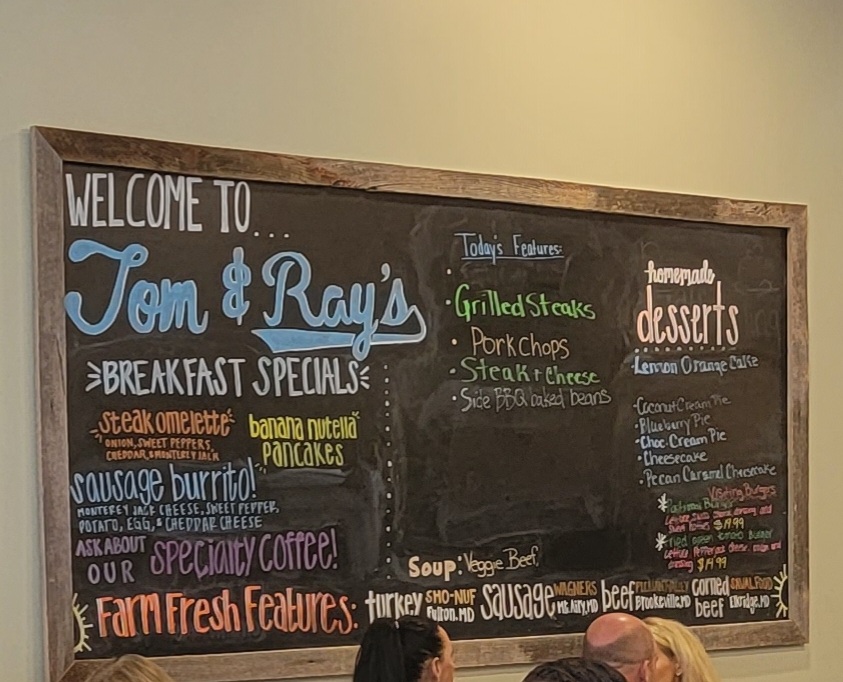 WELCOME TO...
Tom & Ray's
BREAKFAST SPECIALS
steak omelette
ONION, SWEET PEPPERS,
CHEDDAR, & MONTEREY JACK
banana nutella
pancakes
sausage burrito!
MONTEREY JACK CHEESE, SWEET PEPPER,
POTATO, EGG, & CHEDDAR CHEESE
ASK ABOUT
OUR
specialty coffee!
Today's Features:
• Grilled Steaks
• Pork Chops
• Steak + Cheese
• Side BBQ baked beans
Soup: Veggie Beef
homemade
desserts
• Lemon Orange Cake
• Coconut Cream Pie
• Blueberry Pie
• Choc Cream Pie
• Cheesecake
• Pecan Caramel Cheesecake
Visiting Burgers
Burger
and
$14.99
green tomato Burger
cheese, onion and
dressing $14.99
Farm Fresh Features:
turkey
SMO-NUF
Fulton, MD
sausage
WAGNERS
Mt. Airy, MD
beef
Brookeville, MD
corned
beef
Elkridge, MD